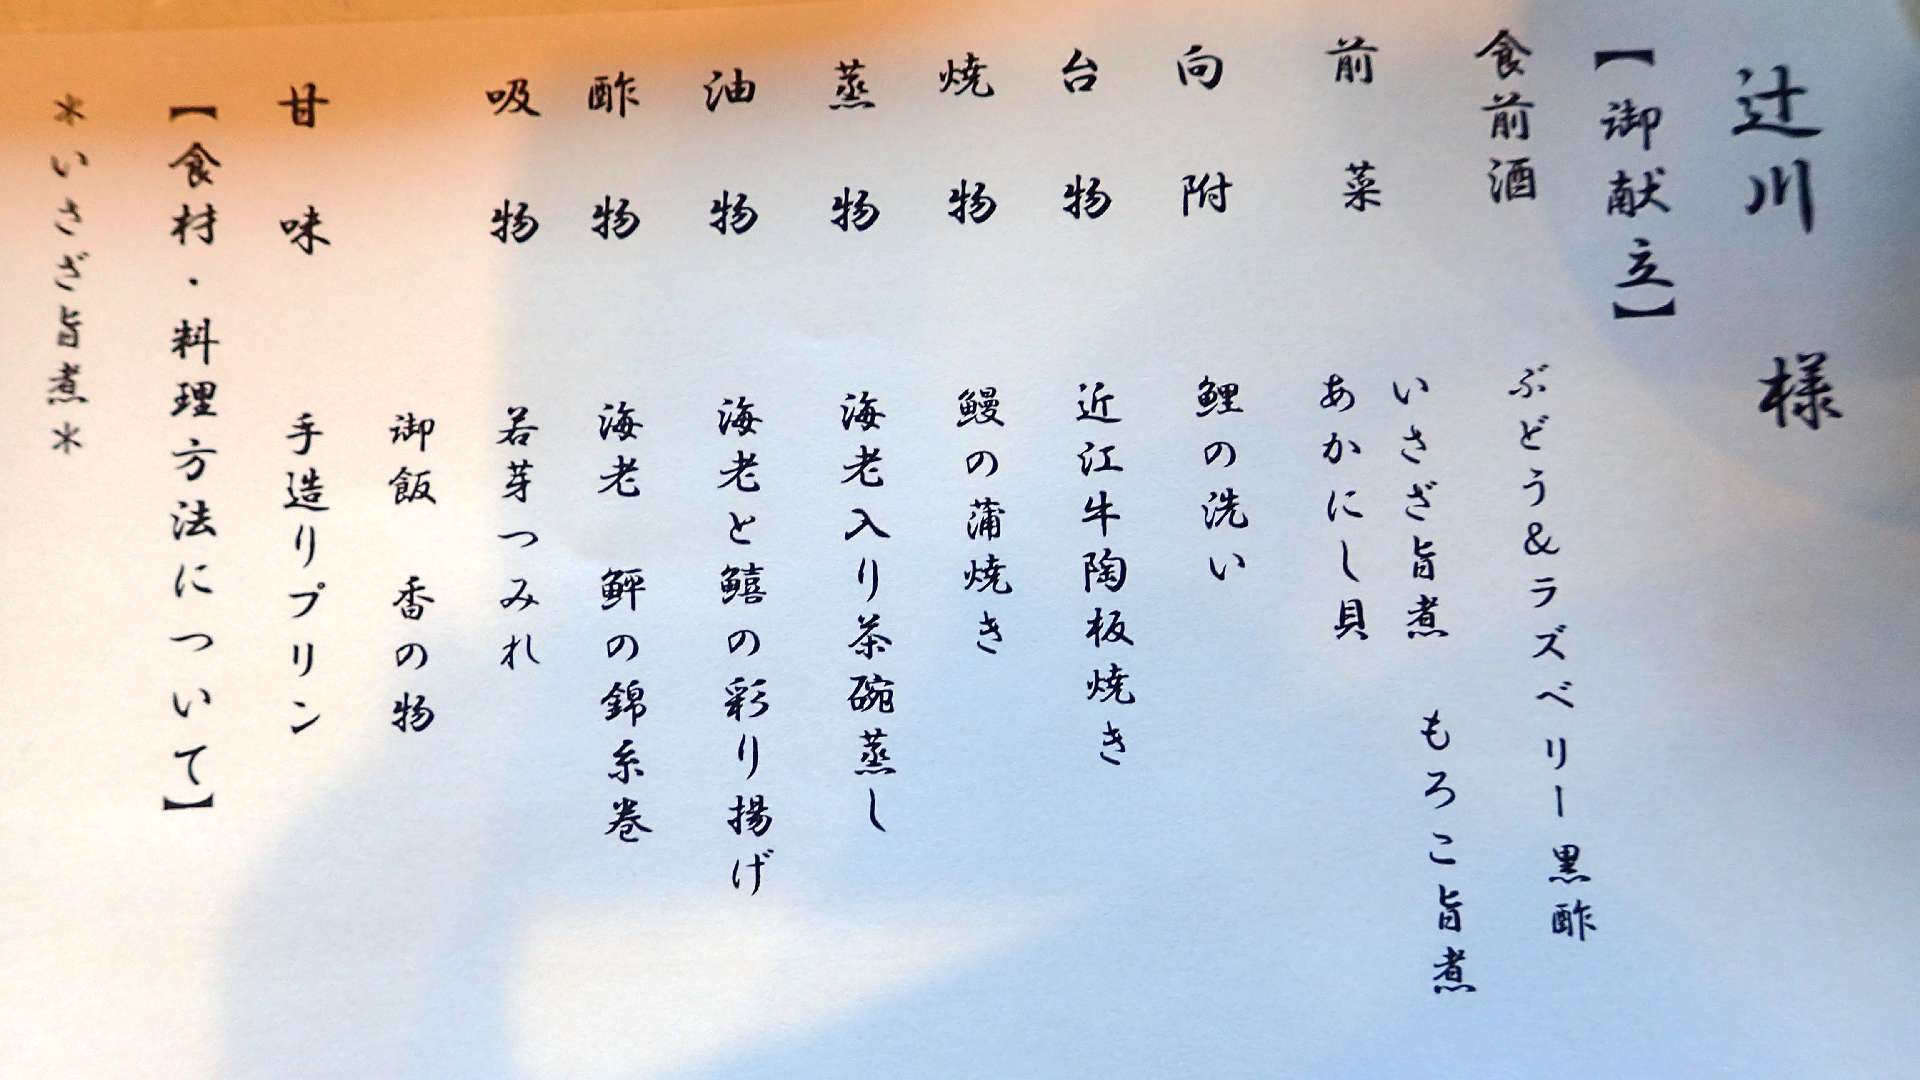 辻川 様
【御献立】
食前酒 ぶどう&ラズベリー黒酢
前菜 いさざ旨煮 もろこ旨煮
あかにし貝
向附 鯉の洗い
台物 近江牛陶板焼き
焼物 鰻の蒲焼き
蒸物 海老入り茶碗蒸し
油物 海老と鱚の彩り揚げ
酢物 海老 鮃の錦糸巻
吸物 若芽つみれ
御飯 香の物
甘味 手造りプリン
【食材・料理方法について】
*いさざ旨煮*